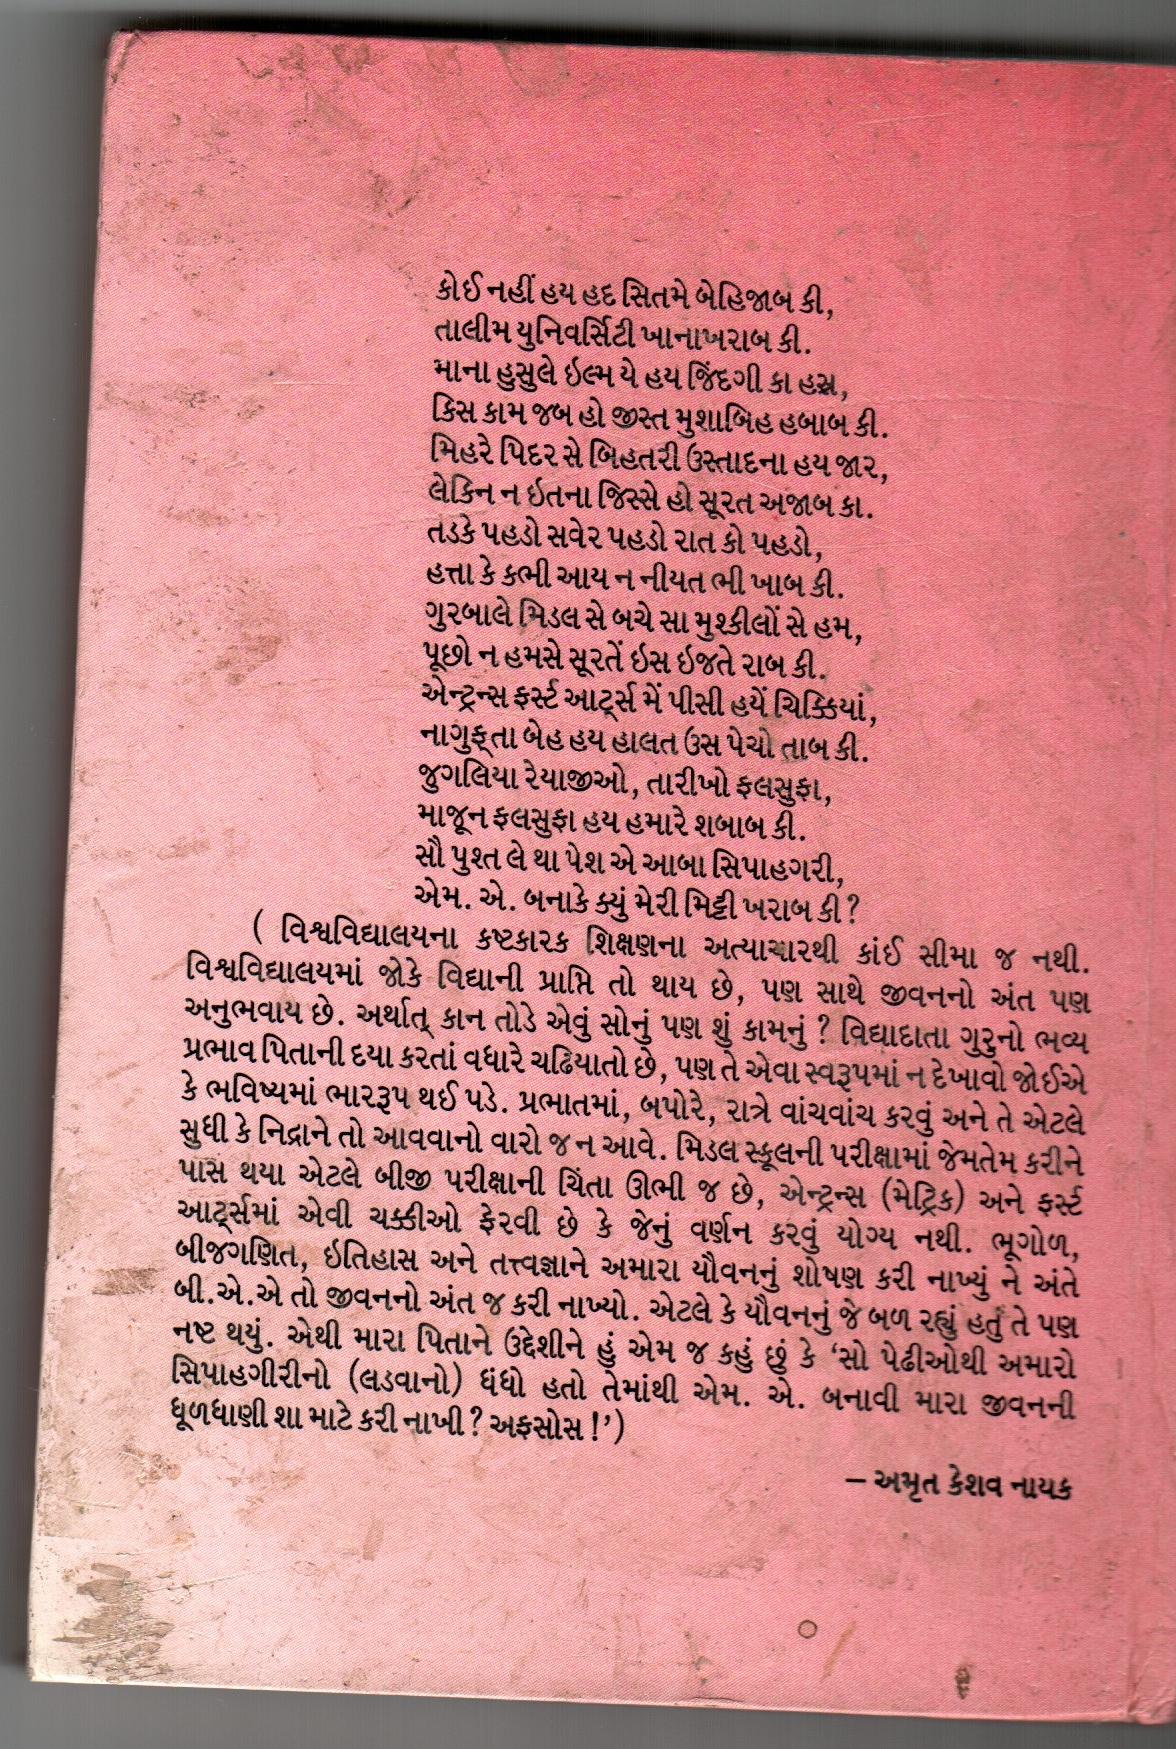 કોઈ નહીં હય હદ સિતમે બેહિજાબ કી,
તાલીમ યુનિવર્સિટી ખાનાખરાબ કી.
માના હુસુલે ઇલ્મ યે હય જિંદગી કા હસ્ર,
કિસ કામ જબ હો જીસ્ત મુશાબિહ હબાબ કી.
મિહરે પિદર સે બિહતરી ઉસ્તાદના હય જાર,
લેકિન ન ઇતના જિસ્સે હો સૂરત અજાબ કા.
તડકે પહડો સવેર પહડો રાત કો પહડો,
હત્તા કે કભી આય ન નીયત ભી ખાબ કી.
ગુરબાલે મિડલ સે બચે સા મુશ્કીલોં સે હમ,
પૂછો ન હમસે સૂરતેં ઇસ ઇજતે રાબ કી.
એન્ટ્રન્સ ફર્સ્ટ આર્ટ્સ મેં પીસી હયેં ચિક્કિયાં,
નાગુફ્તા બેહ હય હાલત ઉસ પેચો તાબ કી.
જુગલિયા રેયાજીઓ, તારીખો ફલસુફા,
માજૂન ફલસુફા હય હમારે શબાબ કી.
સૌ પુશ્ત લે થા પેશ એ આબા સિપાહગરી,
એમ. એ. બનાકે ક્યું મેરી મિટ્ટી ખરાબ કી?
( વિશ્વવિદ્યાલયના કષ્ટકારક શિક્ષણના અત્યાચારથી કાંઈ સીમા જ નથી.
વિશ્વવિદ્યાલયમાં જોકે વિદ્યાની પ્રાપ્તિ તો થાય છે, પણ સાથે જીવનનો અંત પણ
અનુભવાય છે. અર્થાત્ કાન તોડે એવું સોનું પણ શું કામનું ? વિદ્યાદાતા ગુરુનો ભવ્ય
પ્રભાવ પિતાની દયા કરતાં વધારે ચઢિયાતો છે, પણ તે એવા સ્વરૂપમાં ન દેખાવો જોઈએ
કે ભવિષ્યમાં ભારરૂપ થઈ પડે. પ્રભાતમાં, બપોરે, રાત્રે વાંચવાંચ કરવું અને તે એટલે
સુધી કે નિદ્રાને તો આવવાનો વારો જ ન આવે. મિડલ સ્કૂલની પરીક્ષામાં જેમતેમ કરીને
પાસ થયા એટલે બીજી પરીક્ષાની ચિંતા ઊભી જ છે, એન્ટ્રન્સ (મેટ્રિક) અને ફર્સ્ટ
આર્ટ્સમાં એવી ચક્કીઓ ફેરવી છે કે જેનું વર્ણન કરવું યોગ્ય નથી. ભૂગોળ,
બીજગણિત, ઇતિહાસ અને તત્ત્વજ્ઞાને અમારા યૌવનનું શોષણ કરી નાખ્યું ને અંતે
બી.એ.એ તો જીવનનો અંત જ કરી નાખ્યો. એટલે કે યૌવનનું જે બળ રહ્યું હતું તે પણ
નષ્ટ થયું. એથી મારા પિતાને ઉદ્દેશીને હું એમ જ કહું છું કે ‘સો પેઢીઓથી અમારો
સિપાહગીરીનો (લડવાનો) ધંધો હતો તેમાંથી એમ. એ. બનાવી મારા જીવનની
ધૂળધાણી શા માટે કરી નાખી? અફસોસ !’)
– અમૃત કેશવ નાયક